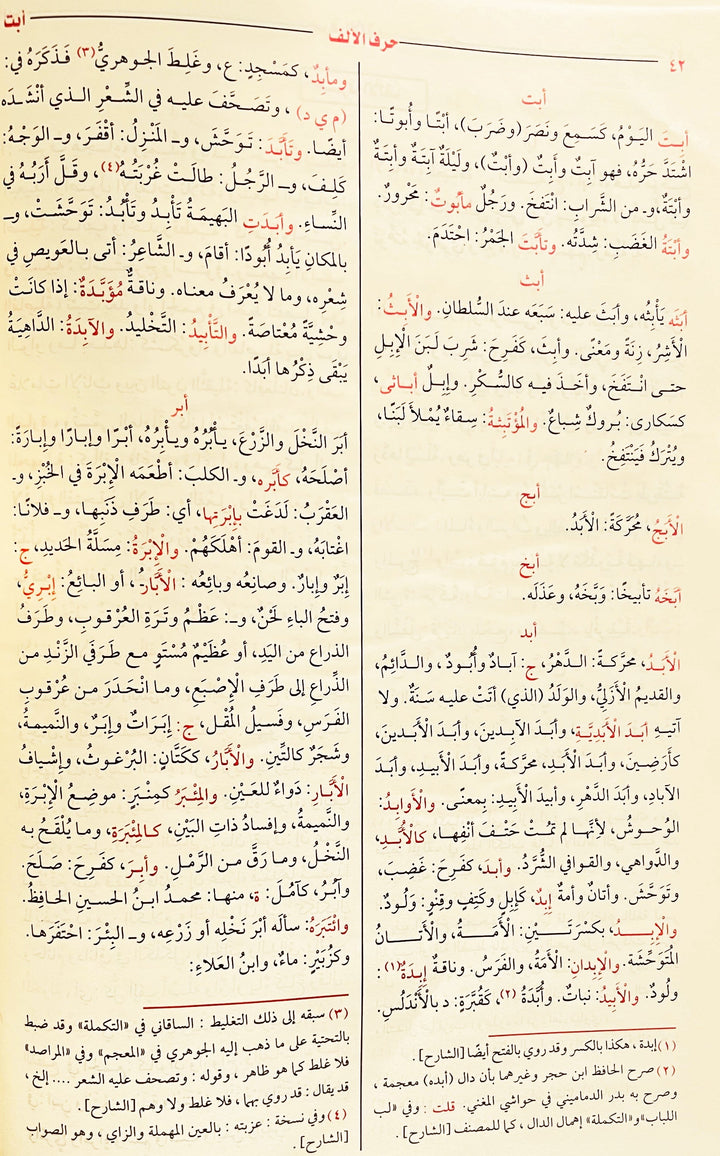 ٤٢
حرف الألف
أبت
أبت
أَبِتَ اليَوْمُ، كَسَمِعَ ونَصَرَ (وضَرَبَ)، أَبْتًا وأُبوتًا:
اشْتَدَّ حَرُّه، فهو آبِتٌ وأَبِتٌ (وأَبْتٌ)، ولَيْلَةٌ آبِتَةٌ وأَبِتَةٌ
وأَبْتَةٌ، و۔ من الشَّرابِ: انْتَفَخَ. ورَجُلٌ مأبُوتٌ: مَحْرُورٌ.
وأَبْتَةُ الغَضَبِ: شِدَّتُه. وتأَبَّتَ الجَمْرُ: احْتَدَمَ.
أبث
أَبَثَه يَأْبِثُه، وأَبَثَ عليه: سَبَعَه عندَ السُّلطانِ. والْأَبِثُ:
الْأَشِرُ، زِنَةً ومَعْنًى. وأَبِثَ، كَفَرِحَ: شَرِبَ لَبَنَ الْإِبِلِ
حتى انْتَفَخَ، وأَخَذَ فيه كالسُّكْرِ. وإِبِلٌ أَباثَى،
كسَكارى: بُروكٌ شِباعٌ. والمُؤْتَبِثَةُ: سِقاءٌ يُمْلأُ لَبَنًا،
ويُتْرَكُ فَيَنْتَفِخُ.
أبج
الْأَبَجُ، مُحَرَّكَةً: الْأَبَدُ.
أبخ
أَبَّخَهُ تأبيخًا: وَبَّخَهُ، وعَذَلَه.
أبد
الْأَبَدُ، محرَّكةً: الدَّهْرُ، ج: آبادٌ وأُبُودٌ، والدَّائِمُ،
والقديمُ الْأَزَلِيُّ، والوَلَدُ (الذي) أتَتْ عليه سَنَةٌ. ولا
آتيهِ أبَدَ الْأَبَدِيَّةِ، وأبَدَ الآبِدينَ، وأبَدَ الْأَبَدينَ،
كأَرَضِينَ، وأبَدَ الْأَبَدِ، محرَّكةً، وأبَدَ الْأَبيدِ، وأبَدَ
الآبادِ، وأبَدَ الدَّهْرِ، وأبيدَ الْأَبِيدِ: بِمعنًى. والْأَوابِدُ:
الوُحوشُ، لأنَّها لم تَمُتْ حَتْفَ أنْفِها، كالْأُبَّدِ،
والدَّواهي، والقوافي الشُّرَّدُ. وأَبِدَ، كَفَرِحَ: غَضِبَ،
وتَوَحَّشَ. وأتانٌ وأمةٌ إِبِدٌ، كَإِبِلٍ وكَتِفٍ وقِنْوٍ: وَلُودٌ.
والْإِبِدُ، بكسْرَتَيْنِ: الْأَمَةُ، والْأَتانُ
المُتَوَحِّشَة. والْإِبدانِ: الْأَمَةُ، والفَرَسُ. وناقةٌ إِبِدَةٌ(١):
ولُودٌ. والْأَبيدُ: نباتٌ. وأُبَّدَةُ (٢)، كَقُبَّرَةٍ: د بالْأَنْدَلُسِ.
(١) إبدة ، هكذا بالكسر وقد روي بالفتح أيضًا [الشارح] .
(٢) صرح الحافظ ابن حجر وغيرهما بأن دال (أبده) معجمة ،
وصرح به بدر الدماميني في حواشي المغني. قلت : وفي «لب
اللباب» و«التكملة» إهمال الدال ، كما للمصنف [الشارح] .
ومأبِدٌ، كمَسْجِدٍ: ع، وغَلِطَ الجوهريُّ(٣) فَذَكَرَهُ في:
(م ي د) ، وتَصَحَّفَ عليه في الشِّعْرِ الذي أنْشَدَه
أيضًا. وتَأَبَّدَ: تَوَحَّشَ، و۔ المَنْزِلُ: أقْفَرَ، و۔ الوَجْهُ:
كَلِفَ، و۔ الرَّجُلُ: طالَتْ غُرْبَتُهُ(٤)، وقَلَّ أرَبُهُ في
النِّساءِ. وأبَدَتِ البَهيمَةُ تَأْبِدُ وتَأْبُدُ: تَوَحَّشَتْ، و۔
بالمكانِ يَأْبِدُ أُبُودًا: أقامَ، و۔ الشَّاعِرُ: أتى بالعَويصِ في
شِعْرِه، وما لا يُعْرَفُ معناه. وناقةٌ مُؤَبَّدَةٌ: إذا كانَتْ
وحْشِيَّةً مُعْتاصَةً. والتَّأْبِيدُ: التَّخْليدُ. والآبِدَةُ: الدَّاهِيَةُ
يَبْقَى ذِكْرُها أبَدًا.
أبر
أبَرَ النَّخْلَ والزَّرْعَ، يأْبُرُه ويأْبِرُه، أَبْرًا وإبارًا وإبارَةً:
أصْلَحَهُ، كأَبَّره، و۔ الكلبَ: أطْعَمَه الْإِبْرَةَ في الخُبْزِ، و۔
العَقْرَبُ: لَدَغَتْ بإِبْرَتِها، أي: طَرَفِ ذَنَبِها، و۔ فلانًا:
اغْتابَهُ، و۔ القومَ: أهْلَكَهُمْ. والْإِبْرَةُ: مِسَلَّةُ الحَديدِ، ج:
إِبَرٌ وإبارٌ. وصانِعُه وبائعُه : الْأَبَّارُ، أو البائِعُ: إِبْرِيٌّ،
وفتحُ الباءِ لَحْنٌ، و۔: عَظْمُ وتَرَةِ العُرْقوبِ، وطَرَفُ
الذراعِ من اليَدِ، أو عُظَيْمٌ مُسْتَوٍ مع طَرَفي الزَّنْدِ من
الذِّراعِ إلى طَرَفِ الْإِصْبَعِ، وما انْحَدَرَ من عُرْقوبِ
الفَرَسِ، وفَسيلُ المُقْل، ج: إِبَراتٌ وإِبَرٌ، والنَّميمةُ،
وشَجَرٌ كالتِّينِ. والْأَبَّارُ، ككَتَّانٍ: البُرْغوثُ، وإشْيافُ
الْأَبَّارِ: دَواءٌ للعَيْنِ. والمِئْبَرُ كمِنْبَرٍ: موضِعُ الْإِبْرَةِ،
والنَّميمةُ، وإفسادُ ذاتِ البَيْنِ، كالمِئْبَرَةِ، وما يُلْقَحُ به
النَّخْلُ، وما رَقَّ من الرَّمْلِ. وأَبِرَ، كفَرِحَ: صَلَحَ.
وآبُرُ، كآمُلَ: ة، منها: محمدُ ابنُ الحسينِ الحافِظُ.
وائْتَبَرَهُ: سألَه أبْرَ نَخْلِه أو زَرْعِه، و۔ البِئْرَ: احْتَفَرَها.
وكزُبَيْرٍ: ماءٌ، وابنُ العَلاءِ:
(٣) سبقه إلى ذلك التغليط : الساقاني في «التكملة» وقد ضبط
بالتحتية على ما ذهب إليه الجوهري في «المعجم» وفي «المراصد»
فلا غلط كما هو ظاهر ، وقوله : وتصحف عليه الشعر .... إلخ ،
قد يقال : قد روي بهما ، فلا غلط ولا وهم [الشارح] .
(٤) وفي نسخة : عزبته : بالعين المهملة والزاي ، وهو الصواب
[الشارح] .